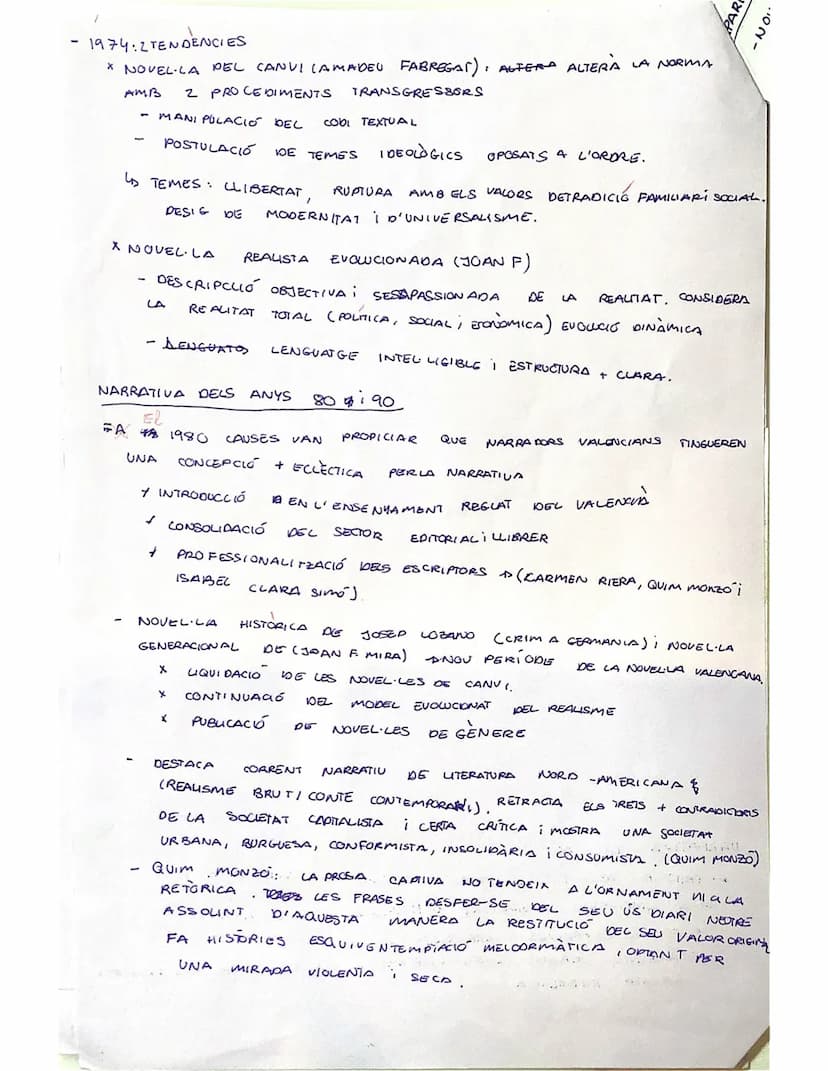 PARI
- NOU
- 1974: 2 TENDÈNCIES
* NOVEL·LA DEL CANVI (AMADEU FABREGAT): ALTERA ALTERÀ LA NORMA
AMB 2 PROCEDIMENTS TRANSGRESSORS
- MANIPULACIÓ DEL CODI TEXTUAL
- POSTULACIÓ DE TEMES IDEOLÒGICS OPOSATS A L'ORDRE.
↳ TEMES: LLIBERTAT, RUPTURA AMB ELS VALORS DE TRADICIÓ FAMILIAR i SOCIAL.
DESIG DE MODERNITAT i D'UNIVERSALISME.
* NOVEL·LA REALISTA EVOLUCIONADA (JOAN F)
- DESCRIPCCIÓ OBJECTIVA i DESAPASSIONADA DE LA REALITAT. CONSIDERA
LA REALITAT TOTAL (POLÍTICA, SOCIAL i ECONÒMICA) EVOLUCIÓ DINÀMICA
- LENGUATGE INTEL·LIGIBLE i ESTRUCTURA + CLARA.
NARRATIVA DELS ANYS 80 i 90
EL
- A 1980 CAUSES VAN PROPICIAR QUE NARRADORS VALENCIANS TINGUEREN
UNA CONCEPCIÓ + ECLÈCTICA PER LA NARRATIVA
* INTRODUCCIÓ EN L'ENSENYAMENT REGLAT DEL VALENCIÀ
* CONSOLIDACIÓ DEL SECTOR EDITORIAL i LLIBRER
* PROFESSIONALITZACIÓ DELS ESCRIPTORS → (CARMEN RIERA, QUIM MONZÓ i
ISABEL CLARA SIMÓ)
- NOVEL·LA HISTÒRICA DE JOSEP LOZANO (CRIM A GERMANIA) i NOVEL·LA
GENERACIONAL DE (JOAN F. MIRA) → NOU PERÍODE DE LA NOVEL·LA VALENCIANA.
X LIQUIDACIÓ DE LES NOVEL·LES DE CANVI.
X CONTINUACIÓ DEL MODEL EVOLUCIONAT DEL REALISME
X PUBLICACIÓ DE NOVEL·LES DE GÈNERE
- DESTACA CORRENT NARRATIU DE LITERATURA NORD-AMERICANA
(REALISME BRUT / CONTE CONTEMPORANI). RETRACTA ELS TRETS + CONTRADICTORIS
DE LA SOCIETAT CAPITALISTA i CERTA CRÍTICA i MOSTRA UNA SOCIETAT
URBANA, BURGUESA, CONFORMISTA, INSOLIDÀRIA i CONSUMISTA. (QUIM MONZÓ)
- QUIM MONZÓ: LA PROSA CAPTIVA NO TENDEIX A L'ORNAMENT NI A LA
RETÒRICA. LES FRASES DESFER-SE DEL SEU ÚS DIARI NEUTRE
ASSOLINT D'AQUESTA MANERA LA RESTITUCIÓ DEL SEU VALOR ORIGINAL
FA HISTÒRIES ESQUIVEN TEMPTACIÓ MELODRMÀTICA, OPTANT PER
UNA MIRADA VIOLENTA i SECA.